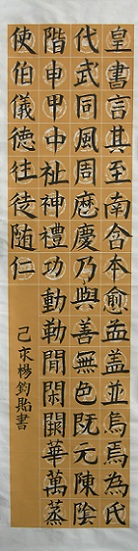 皇書言其至南含本愈益蓋並烏焉為氏
代武同風周慶乃與善無色既元陳陰
階申甲中祉神禮功動勒間閑闕華萬蒸
使伯儀德往徒隨仁
己未楊鈞貽書